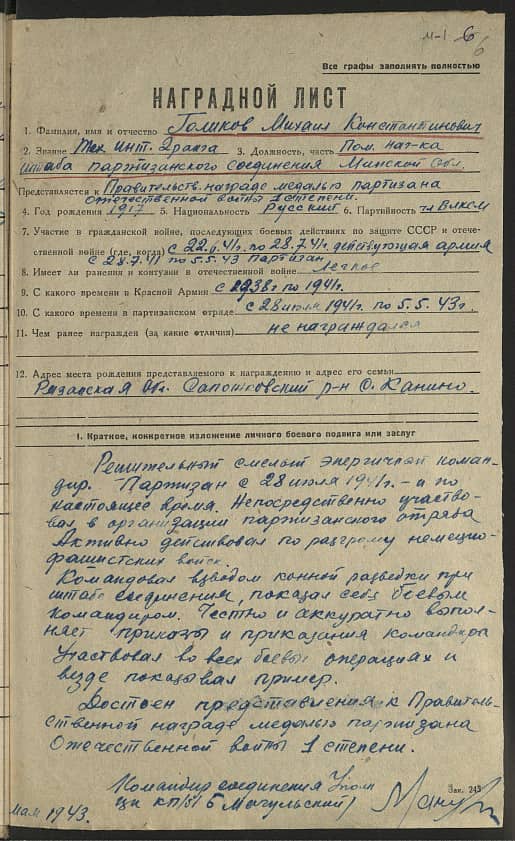 М-1 6
6
Все графы заполнять полностью
НАГРАДНОЙ ЛИСТ
1. Фамилия, имя и отчество Голиков Михаил Константинович
2. Звание Тех инт. 2 ранга 3. Должность, часть Пом. нач-ка
штаба партизанского соединения Минской Обл.
Представляется к Правительств. награде медалью партизана
отечественной войны 1 степени.
4. Год рождения 1917 5. Национальность Русский 6. Партийность чл ВЛКСМ
7. Участие в гражданской войне, последующих боевых действиях по защите СССР и отече-
ственной войне (где, когда) с 22.6.41г. по 28.7.41г. действующая армия
с 28.7.41 по 5.5.43 партизан
8. Имеет ли ранения и контузии в отечественной войне Легкое
9. С какого времени в Красной Армии с 1938г по 1941г.
10. С какого времени в партизанском отряде с 28 июля 1941г. по 5.5.43г.
11. Чем ранее награжден (за какие отличия) не награждался
12. Адрес места рождения представляемого к награждению и адрес его семьи
Рязанская Обл. Сапожковский р-н С. Канино.
I. Краткое, конкретное изложение личного боевого подвига или заслуг
Решительный смелый энергичный коман-
дир. Партизан с 28 июля 1941г. – и по
настоящее время. Непосредственно участво-
вал в организации партизанского отряда
Активно действовал по разгрому немецко-
фашистских войск.
Командовал взводом конной разведки при
штабе соединения, показал себя боевым
командиром. Честно и аккуратно выпол-
няет приказы и приказания командира
Участвовал во всех боевых операциях и
везде показывал пример.
Достоен представления к Правитель-
ственной награде медалью партизана
Отечественной войны 1 степени.
Командир соединения Уполн
цк кп(б)Б Мачульский)
Зак. 245
Мая 1943.